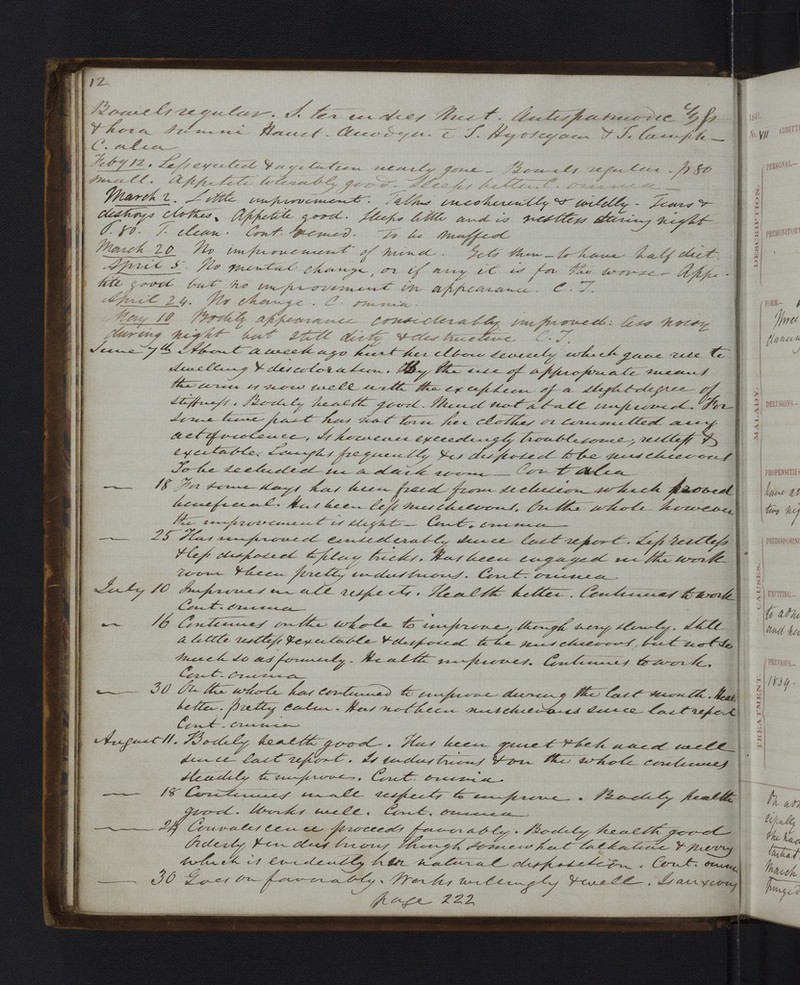 12
Bowels regular. S. ter in dies Must. Antispasmodic
& hora somni Haust. Anodyn. c T. Hyosyam & T. Camph -
C. alia
Feby 12. Less excited & agitation nearly gone - Bowels regular. P 80
small. Appetite tolerably good. Sleeps better. C. omnia
March 2. Little improvement. Talks incoherently & wildly - Tears &
destroys clothes. Appetite good. Sleeps little and is restless during night
P. 80. T. clean. Cont. remed. To be muffed
March 20 No improvement of mind. Gets thin - to have half diet.
April 5 No mental change, or if any it is for the worse - Appe-
tite good but no improvement in appearance. C. T.
April 24. No change. C. omnia
May 10 Bodily appearance considerably improved: less noisy
during night but still dirty & destructive C. T.
June 7th About a week ago hurt her elbow severely which gave rise to
swelling & discoloration. By the use of appropriate means
the arm is now well with the exception of a slight degree of
stiffness. Bodily health good. Mind not at all improved. For
some time past has not torn her clothes or committed any
act of violence. Is however exceedingly troublesome, restless &
excitable. Laughs frequently & is disposed to be mischievous
To be secluded in a dark room - Cont alia
— 18 For some days has been freed from seclusion which proved
beneficial. Has been less mischievous. On the whole however
the improvement is slight - Cont. omnia
— 25 Has improved considerably since last report. Less restless
& less disposed to play tricks. Has been engaged in the work
room & been pretty industrious. Cont. omnia
July 10 Improves in all respects. Health better. Continues to work
Cont. omnia
— 16 Continues on the whole to improve, though very slowly. Still
a little restless & excitable & disposed to be mischievous, but not so
much so as formerly. Health improves. Continues to work.
Cont. omnia
— 30 On the whole has continued to improve during the last month. Health
better. Pretty calm. Has not been mischievous since last report
Cont. omnia
August 11. Bodily health good. Has been quiet & behaved well
since last report. Is industrious & on the whole continues
steadily to improve. Cont. omnia
— 18 Continues in all respects to improve. Bodily health
good. Works well. Cont. omnia
— 24 Convalescence proceeds favorably. Bodily health good
Orderly & industrious though somewhat talkative & merry
which is evidently her natural disposition. Cont. omnia
— 30 Goes on favorably. Works willingly & well. Is anxious
page 222
No. VII
PERSONAL—
DESCRIPTION.
FORM—
MALADY.
DELUSIONS—
CAUSES.
EXCITING—
PREVIOUS—
1839.
TREATMENT.
March